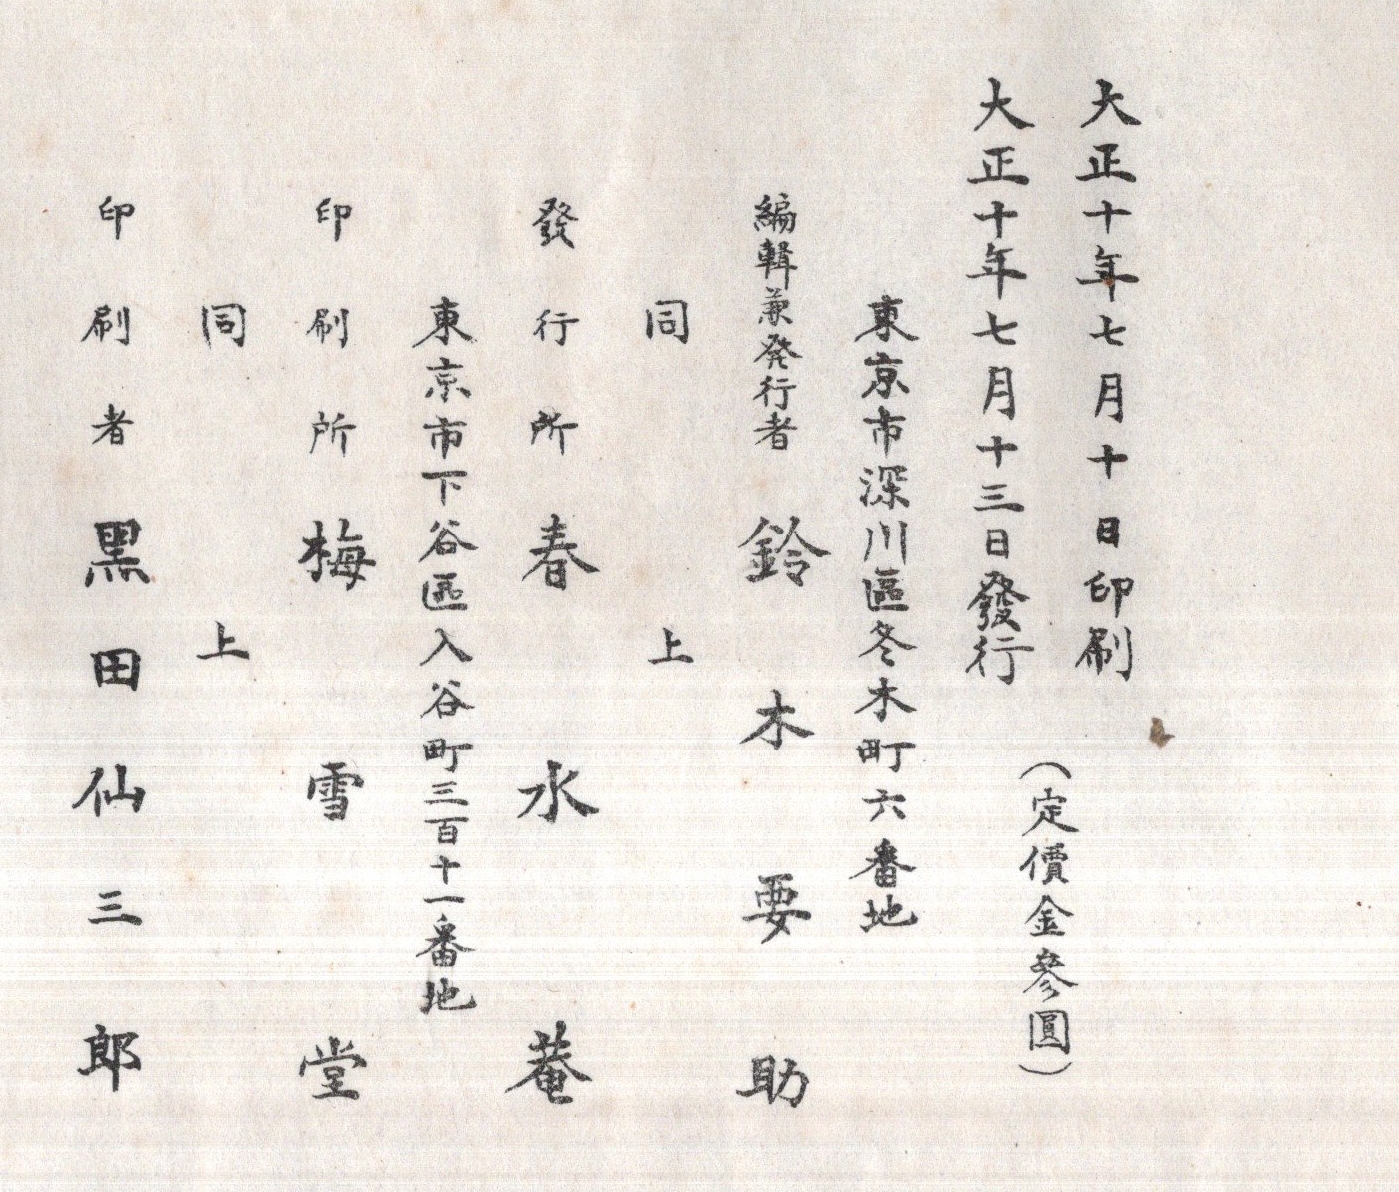 大正十年七月十日印刷
大正十年七月十三日發行
（定價金參圓）
東京市深川區冬木町六番地
編輯兼発行者 鈴木要助
同上
發行所 春水菴
東京市下谷區入谷町三百十一番地
印刷所 梅雪堂
同上
印刷者 黒田仙三郎